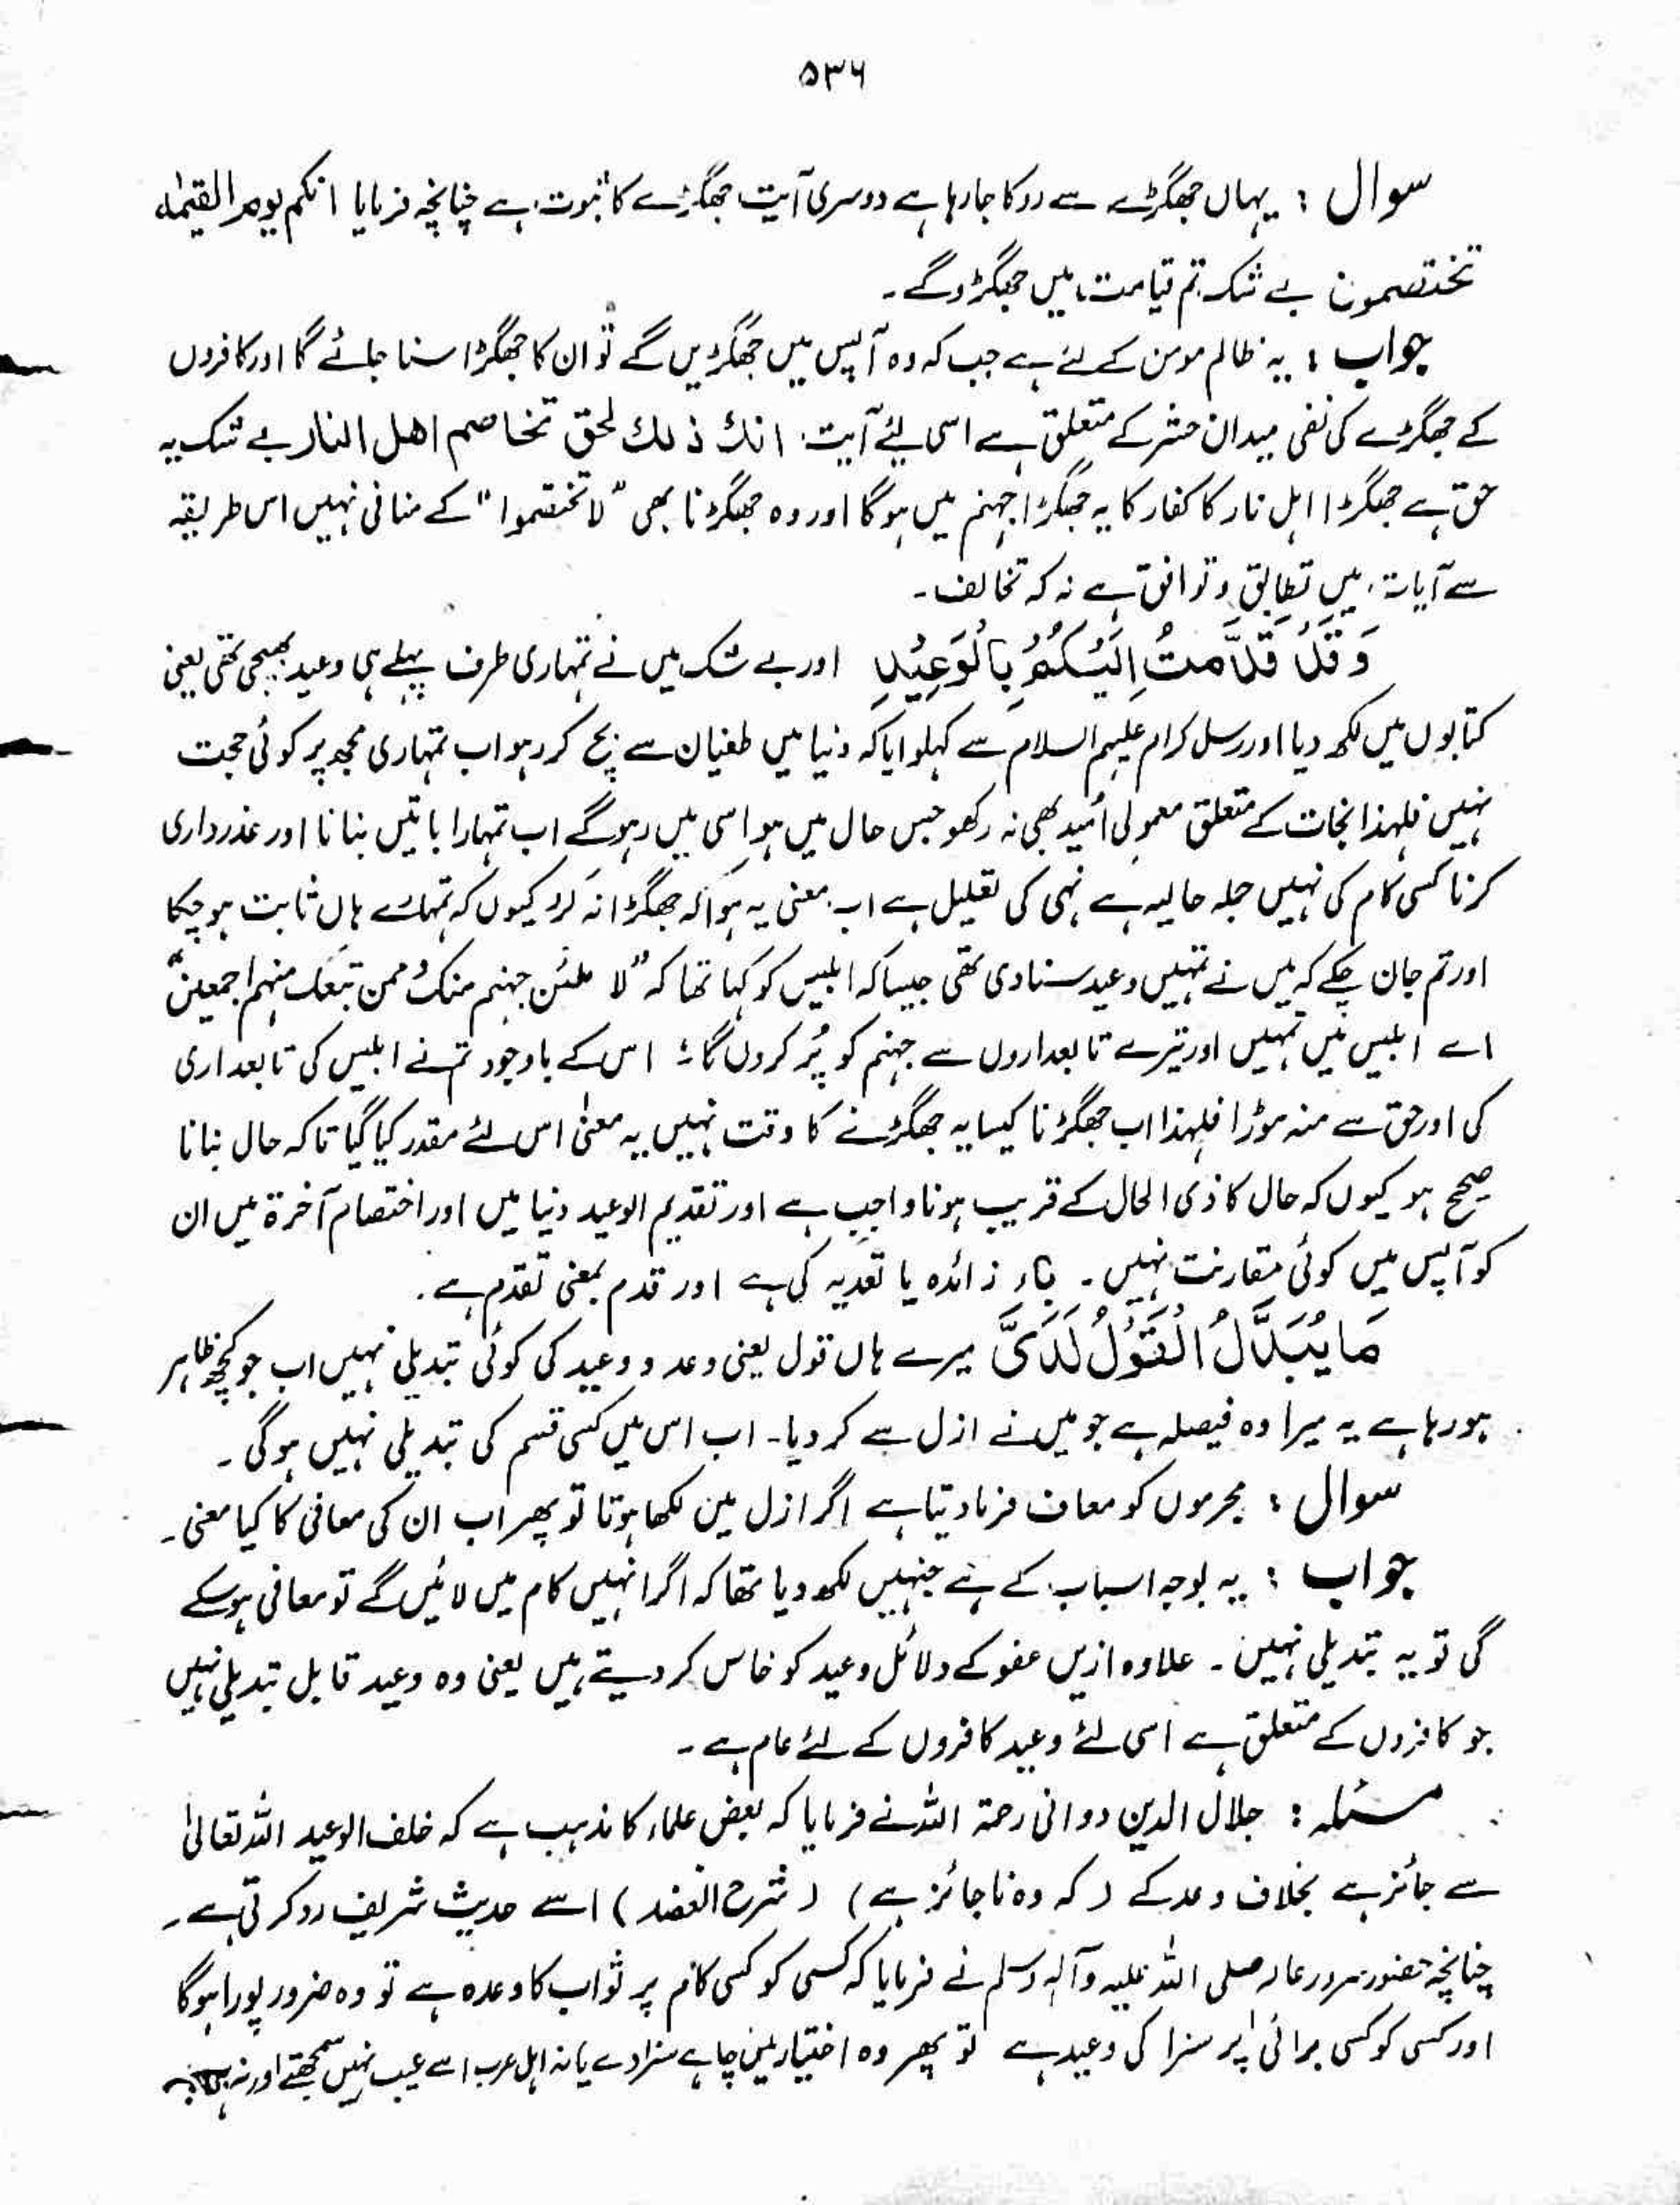 ۵۳۶
سوال : یہاں جھگڑے سے روکا جا رہا ہے دوسری آیت جھگڑے کا ثبوت ہے چنانچہ فرمایا انکم یوم القیٰمۃ
تختصمون بے شک تم قیامت میں جھگڑو گے ۔
جواب : یہ ظالم مومن کے لئے ہے جب کہ وہ آپس میں جھگڑیں گے تو ان کا جھگڑا سنا جائے گا اور کافروں
کے جھگڑے کی نفی میدان حشر کے متعلق ہے اسی لیئے آیت انك ذلك لحق تخاصم اهل النار بے شک یہ
حق ہے جھگڑا اہل نار کا کفار کا یہ جھگڑا جہنم میں ہو گا اور وہ جھگڑنا بھی "لا تختصموا" کے منافی نہیں اس طریقہ
سے آیات میں تطابق و توافق ہے نہ کہ تخالف ۔
وَقَدْ قَدَّمْتُ اِلَيْكُمْ بِالْوَعِيْدِ اور بے شک میں نے تمہاری طرف پہلے ہی وعید بھیجی تھی یعنی
کتابوں میں لکھ دیا اور رسل کرام علیہم السلام سے کہلوایا کہ دنیا میں طغیان سے بچ کر رہو اب تمہاری مجھ پر کوئی حجت
نہیں فلہذا نجات کے متعلق معمولی اُمید بھی نہ رکھو جس حال میں ہو اسی میں رہو گے اب تمہارا باتیں بنانا اور عذرداری
کرنا کسی کام کی نہیں جملہ حالیہ ہے نہی کی تعلیل ہے اب معنی یہ ہوا کہ جھگڑا نہ کرو کیوں کہ تمہارے ہاں ثابت ہو چکا
اور تم جان چکے کہ میں نے تمہیں وعید سنادی تھی جیسا کہ ابلیس کو کہا تھا کہ "لا ملئن جہنم منک وممن تبعک منہم اجمعین"
اے ابلیس میں تمہیں اور تیرے تابعداروں سے جہنم کو پُر کروں گا ؛ اس کے باوجود تم نے ابلیس کی تابعداری
کی اور حق سے منہ موڑا فلہذا اب جھگڑنا کیسا یہ جھگڑنے کا وقت نہیں یہ معنیٰ اس لئے مقدر کیا گیا تاکہ حال بنانا
صحیح ہو کیوں کہ حال کا ذی الحال کے قریب ہونا واجب ہے اور تقدیم الوعید دنیا میں اور اختصام آخرۃ میں ان
کو آپس میں کوئی مقارنت نہیں ۔ باء زائدہ یا تعدیہ کی ہے اور قدم بمعنی تقدم ہے ۔
مَا يُبَدَّلُ الْقَوْلُ لَدَىَّ میرے ہاں قول یعنی وعد و وعید کی کوئی تبدیلی نہیں اب جو کچھ ظاہر
ہو رہا ہے یہ میرا وہ فیصلہ ہے جو میں نے ازل سے کر دیا ۔ اب اس میں کسی قسم کی تبدیلی نہیں ہو گی ۔
سوال : مجرموں کو معاف فرما دیتا ہے اگر ازل میں لکھا ہوتا تو پھر اب ان کی معافی کا کیا معنی ۔
جواب : یہ بوجہ اسباب کے ہے جنہیں لکھ دیا تھا کہ اگر انہیں کام میں لائیں گے تو معافی ہو سکے
گی تو یہ تبدیلی نہیں ۔ علاوہ ازیں عفو کے دلائل وعید کو خاص کر دیتے ہیں یعنی وہ وعید قابل تبدیلی نہیں
جو کافروں کے متعلق ہے اسی لئے وعید کافروں کے لئے عام ہے ۔
مسئلہ : جلال الدین دوانی رحمۃ اللہ نے فرمایا کہ بعض علماء کا مذہب ہے کہ خلف الوعید اللہ تعالیٰ
سے جائز ہے بخلاف وعد کے ( کہ وہ ناجائز ہے ) ( شرح العضد ) اسے حدیث شریف رد کرتی ہے ۔
چنانچہ حضور سرور عالم صلی اللہ علیہ وآلہ وسلم نے فرمایا کہ کسی کو کسی کام پر ثواب کا وعدہ ہے تو وہ ضرور پورا ہو گا
اور کسی کو کسی برائی پر سزا کی وعید ہے تو پھر وہ اختیار میں چاہے سزا دے یا نہ اہل عرب اسے عیب نہیں سمجھتے اور نہ ہی